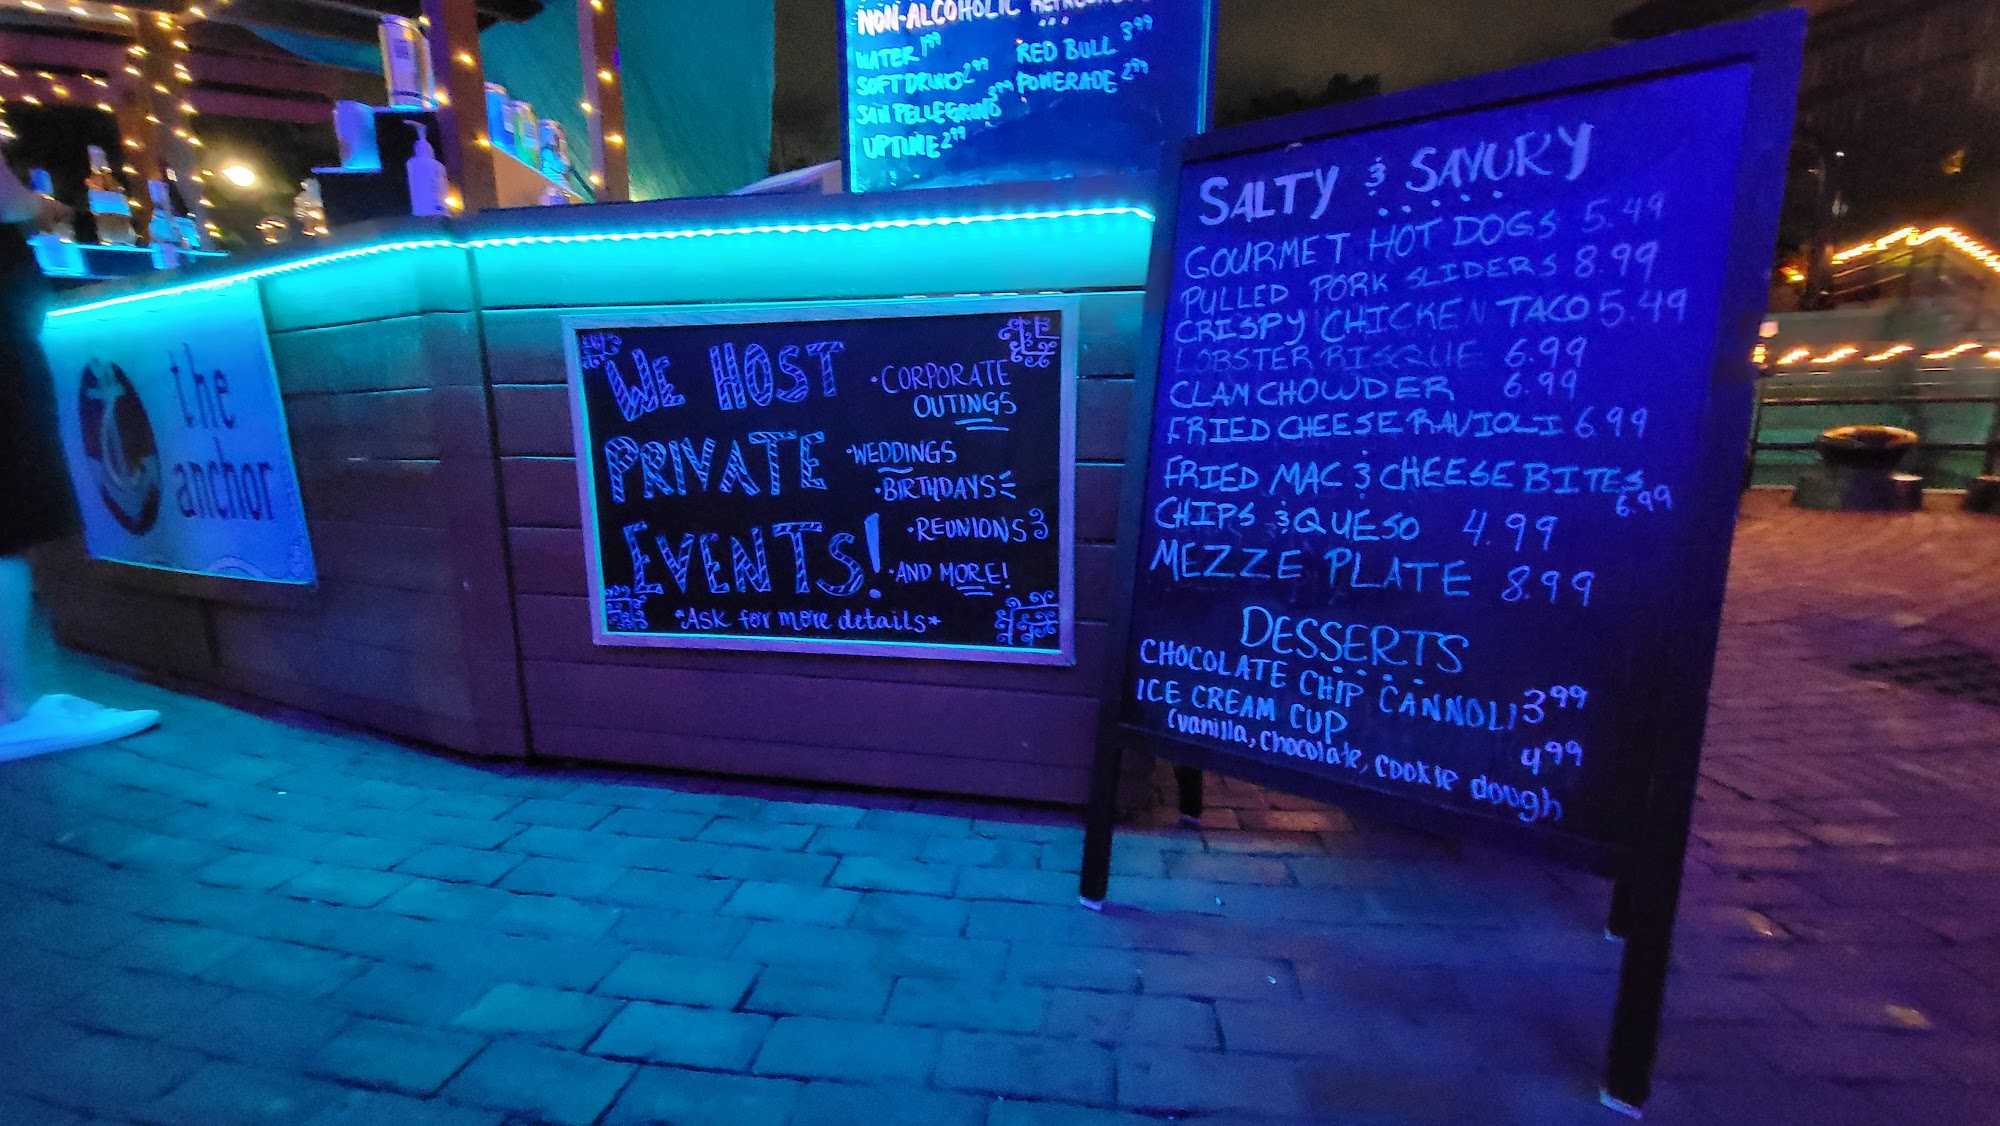 NON-ALCOHOLIC
WATER 1.99
SOFT DRINKS 2.99
SAN PELLEGRINO 3.99
UPTIME 2.99
RED BULL 3.99
POWERADE 2.99
the
anchor
WE HOST
PRIVATE
EVENTS!
·CORPORATE
OUTINGS
·WEDDINGS
·BIRTHDAYS
·REUNIONS
·AND MORE!
*ASK for more details*
SALTY & SAVORY
GOURMET HOT DOGS 5.49
PULLED PORK SLIDERS 8.99
CRISPY CHICKEN TACO 5.49
LOBSTER BISQUE 6.99
CLAM CHOWDER 6.99
FRIED CHEESE RAVIOLI 6.99
FRIED MAC & CHEESE BITES
6.99
CHIPS & QUESO 4.99
MEZZE PLATE 8.99
DESSERTS
CHOCOLATE CHIP CANNOLI 3.99
ICE CREAM CUP 4.99
(vanilla, chocolate, cookie dough